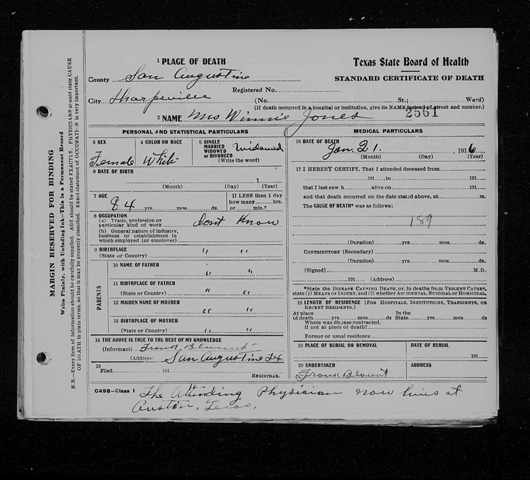 1 PLACE OF DEATH
Texas State Board of Health
County San Augustine
STANDARD CERTIFICATE OF DEATH
Registered No.
City Sharpsville (No. St.; Ward)
(If death occurred in a hospital or institution, give its NAME instead of street and number.)
2561
2 NAME Mrs Winnie Jones
PERSONAL AND STATISTICAL PARTICULARS
MEDICAL PARTICULARS
3 SEX
Female
4 COLOR OR RACE
White
5 SINGLE MARRIED WIDOWED or DIVORCED
(Write the word)
Widowed
6 DATE OF BIRTH
(Month) (Day) 1 (Year)
7 AGE
84 yrs. mos. ds.
If LESS than 1 day how many hrs. or min.?
8 OCCUPATION
(a) Trade, profession or particular kind of work
(b) General nature of industry, business or establishment in which employed (or employer)
Dont Know
9 BIRTHPLACE
(State or County) " "
PARENTS
10 NAME OF FATHER " "
11 BIRTHPLACE OF FATHER
(State or County) " "
12 MAIDEN NAME OF MOTHER " "
13 BIRTHPLACE OF MOTHER
(State or County) " "
14 THE ABOVE IS TRUE TO THE BEST OF MY KNOWLEDGE
(Informant) Frank Blount
(Address) San Augustine Tex
15
Filed 191
REGISTRAR
16 DATE OF DEATH
Jan 21. 1916
(Month) (Day) (Year)
17 I HEREBY CERTIFY, That I attended deceased from
191 to 191
that I last saw h alive on 191
and that death occurred on the date stated above, at m.
The CAUSE OF DEATH* was as follows:
189
(Duration) yrs. mos. ds.
CONTRIBUTORY (Secondary)
(Duration) yrs. mos. ds.
(Signed) M.D.
191 (Address)
*State the DISEASE CAUSING DEATH, or, in Deaths from VIOLENT CAUSES, state (1) MEANS OF INJURY; and (2) whether ACCIDENTAL, SUICIDAL, or HOMICIDAL.
18 LENGTH OF RESIDENCE (FOR HOSPITALS, INSTITUTIONS, TRANSIENTS, OR RECENT RESIDENTS.)
At place of death yrs. mos. ds. In the State yrs. mos. ds.
Where was disease contracted, if not at place of death?
Former or usual residence
19 PLACE OF BURIAL OR REMOVAL
DATE OF BURIAL
191
20 UNDERTAKER
Frank Blount
ADDRESS
C42B—Class 1
The Attending Physician now lives at
Austin, Texas.
MARGIN RESERVED FOR BINDING
Write Plainly, with Unfading Ink—This is a Permanent Record